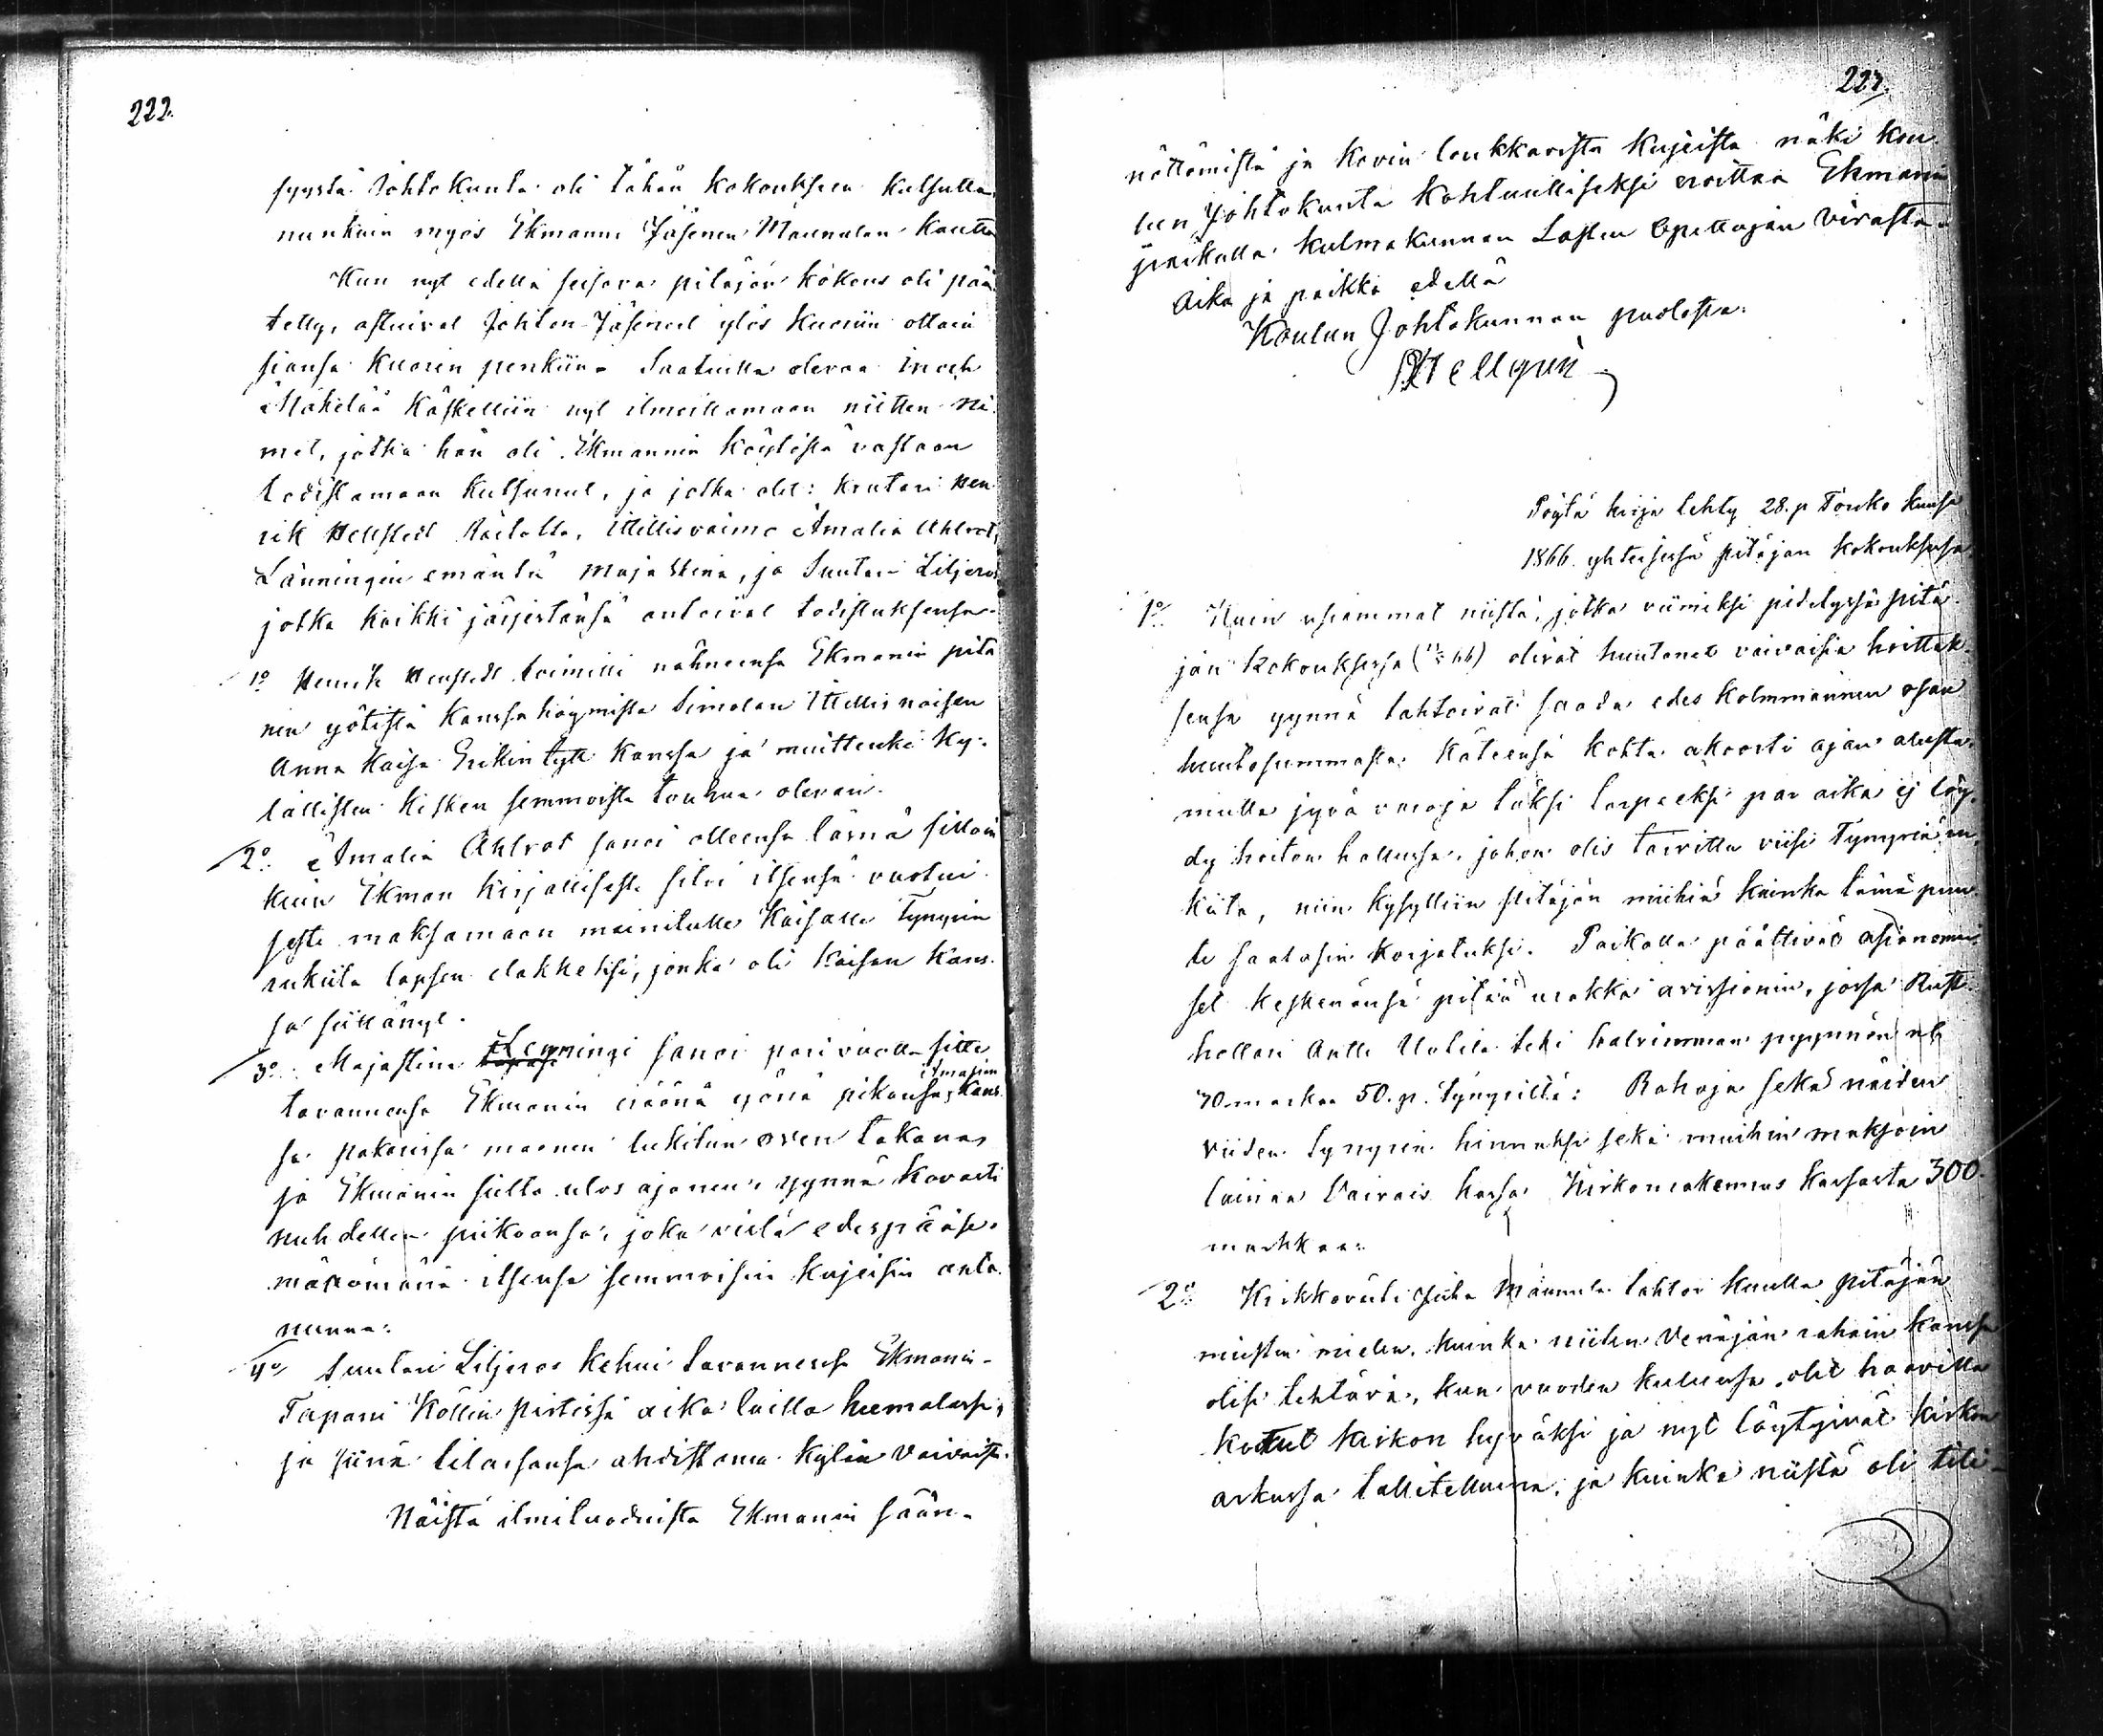 222.
syystä Johtokunta oli tähän kokoukseen kutsuttu,
niinkuin myös Ekmanni Jäsenen Maunulan kautta
Kun nyt edellä seisova pitäjän kokous oli pää-
tetty, astuivat Johton Jäsenet ylös kuoriin ottain
siansa kuorin penkiin. Saatuilla olevaa Inoch
Mäkelää käskettiin nyt ilmoittamaan niitten ni-
met, jotka hän oli Ekmannin käytöstä vastaan
todistamaan kutsunut, ja jotka olit: Krutari Hen-
rik Hellstedt Röitolta, Ittellisvaimo Amalia Ahlrot,
Länningin emäntä Maja Stina, ja Suutari Liljeros
jotka kaikki järjestänsä antoivat todistuksensa.
1o Henrik Hellstedt toimitti nähneensä Ekmanin pitä-
nen yötistä kanssa käymistä Simolan Ittellis naisen
Anna Kaisa Erikin tytt. kanssa ja muittenki ky-
lällisten kesken semmoista touhua olevan.
2o. Amalia Ahlrot sanoi olleensa läsnä silloin
kuin Ekman kirjallisesti sitoi itsensä vuotui-
sesti maksamaan mainitulle Kaisalle Tynyrin
rukiita lapsen elakkeksi, jonka oli Kaisan kans-
sa siittänyt.
3o. Majastina Lenningi sanoi pari vuotta sitte
tavanneensa Ekmanin eräänä yönä pikansa Amalian kans-
sa pakarissa maanen lukitun oven takana,
ja Ekmanin sieltä ulos ajaneen, synnä kovasti
nuhdellen piikaansa, joka vielä edespääse-
mätömänä itsensä semmoisiin kujeisiin anta-
nunna.
4o Suutari Liljeros kehui tavanneensa Ekmanin
Tapani Köllin pirtissä aika lailla huemalassa,
ja siinä tilassansa ahdistama kylän vaivaista.
Näistä ilmituoduista Ekmanin sään-
223.
nöttömistä ja kovin loukkavista kujeista näki kou-
lun Johtokunta kohtuulliseksi eroittaa Ekmanin
paikalla kulmakunnan Lasten Opettajan virasta.
Aika ja paikka edellä
Koulun Johtokunnan puolesta:
Hellgren
Pöytä kirja tehty 28. p Touko kuusa
1866 yhteisessä pitäjän kokouksessa
1o Kuin useammat niistä, jotka viimeksi pidetyssä pitä-
jän kokouksessa olivat huutanet vaivaisia hoittak-
sensa synnä tahtoivat saada edes kolmmannen osan
huutosummasta käteensä kohta akoorti ajan alusta,
mutta jyvä varoja täksi tarpeeksi par aika ej löy-
dy hoiton hallussa, johon olis tarvittu viisi Tynyriä ru-
kiita, niin kysyttiin Pitäjän miehiä kuinka tämä puu-
te saatasin korjatuksi. Paikalla päättivät asianomai-
set keskenänsä pitää urakka avissionin, jossa Rust-
hollari Antti Uotila teki halvimman pyynnön nl
30 markkaa 50. p. Tynyriltä: Rahoja sekä näiden
viiden Tynyrin hinnaksi sekä muihin maksoin
lainaa Vaivais kassa Kirkonrakennus kassasta 300
markkaa.
2o Kirkkoväärti Juha Maunula tahtoi kuulla pitäjän
miesten mielen, kuinka niiden Venäjän rahain kanssa
olisi tehtävä, kun vuoden kuluessa olit haavilla
kootut kirkon hyväksi ja nyt löytyivät kirkon
arkussa tallitettuina, ja kuinka niistä oli tili-